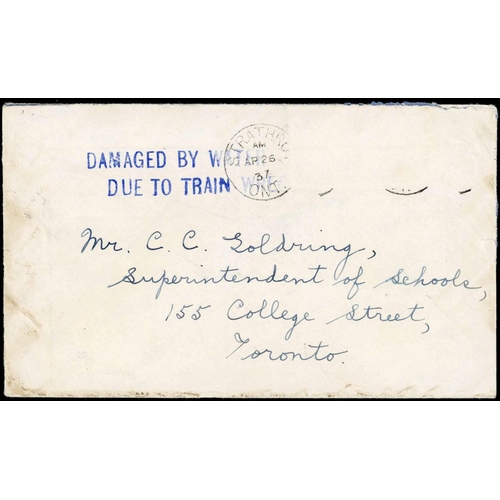 DAMAGED BY
DUE TO TRAIN
AM
AP 26
37
ONT.
Mr. C. C. Goldring,
Superintendent of Schools,
155 College Street,
Toronto.